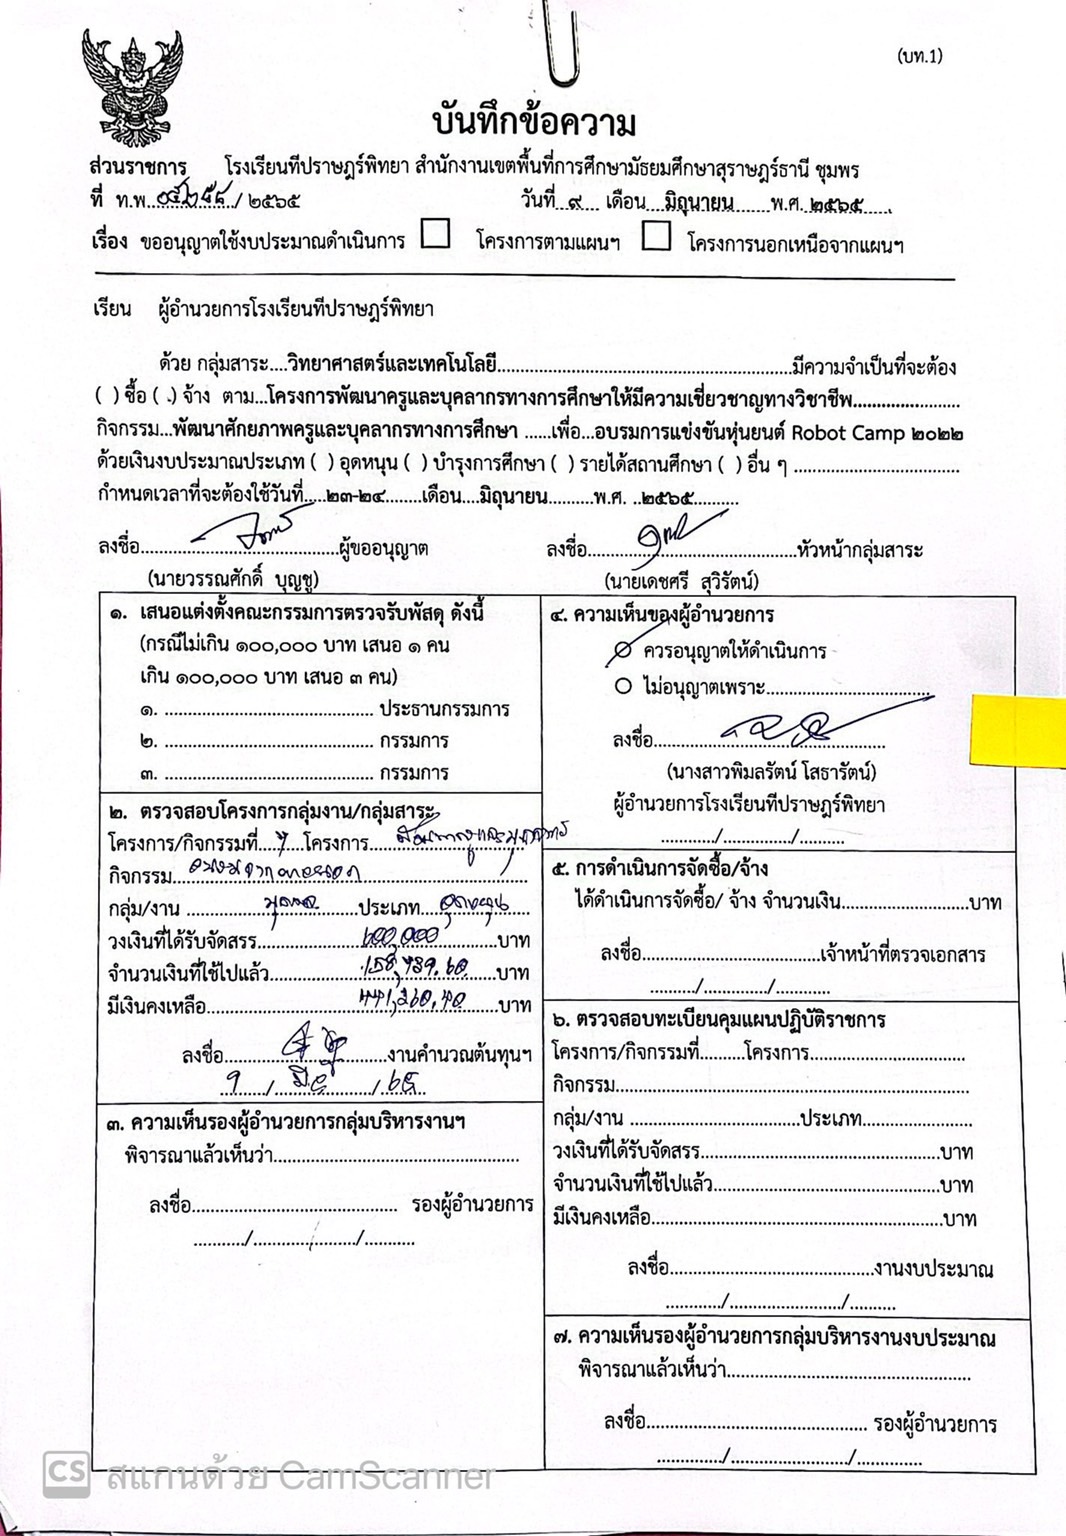 (บท.1)
บันทึกข้อความ
ส่วนราชการ โรงเรียนทีปราษฎร์พิทยา สำนักงานเขตพื้นที่การศึกษามัธยมศึกษาสุราษฎร์ธานี ชุมพร
ที่ ท.พ............../ ๒๕๖๕ วันที่..๙.... เดือน...มิถุนายน.......พ.ศ. ๒๕๖๕......
เรื่อง ขออนุญาตใช้งบประมาณดำเนินการ ☐ โครงการตามแผนฯ ☐ โครงการนอกเหนือจากแผนฯ
เรียน ผู้อำนวยการโรงเรียนทีปราษฎร์พิทยา
ด้วย กลุ่มสาระ....วิทยาศาสตร์และเทคโนโลยี..........มีความจำเป็นที่จะต้อง
( ) ซื้อ ( .) จ้าง ตาม...โครงการพัฒนาครูและบุคลากรทางการศึกษาให้มีความเชี่ยวชาญทางวิชาชีพ..........
กิจกรรม...พัฒนาศักยภาพครูและบุคลากรทางการศึกษา ......เพื่อ...อบรมการแข่งขันหุ่นยนต์ Robot Camp ๒๐๒๒
ด้วยเงินงบประมาณประเภท ( ) อุดหนุน ( ) บำรุงการศึกษา ( ) รายได้สถานศึกษา ( ) อื่น ๆ ..........
กำหนดเวลาที่จะต้องใช้วันที่.....๒๓-๒๔........เดือน....มิถุนายน..........พ.ศ. ..๒๕๖๕..........
ลงชื่อ..........ผู้ขออนุญาต ลงชื่อ..........หัวหน้ากลุ่มสาระ
(นายวรรณศักดิ์ บุญชู) (นายเดชศรี สุวิรัตน์)
๑. เสนอแต่งตั้งคณะกรรมการตรวจรับพัสดุ ดังนี้
(กรณีไม่เกิน ๑๐๐,๐๐๐ บาท เสนอ ๑ คน
เกิน ๑๐๐,๐๐๐ บาท เสนอ ๓ คน)
๑. .......... ประธานกรรมการ
๒. .......... กรรมการ
๓. .......... กรรมการ
๒. ตรวจสอบโครงการกลุ่มงาน/กลุ่มสาระ
โครงการ/กิจกรรมที่.......โครงการ..........
กิจกรรม..........
กลุ่ม/งาน ..........บุคคล..........ประเภท...อุดหนุน
วงเงินที่ได้รับจัดสรร..........600,000..........บาท
จำนวนเงินที่ใช้ไปแล้ว..........158,739.60..........บาท
มีเงินคงเหลือ..........441,260.40..........บาท
ลงชื่อ..........งานคำนวณต้นทุนฯ
9 / มิย / 65
๓. ความเห็นรองผู้อำนวยการกลุ่มบริหารงานฯ
พิจารณาแล้วเห็นว่า..........
ลงชื่อ.......... รองผู้อำนวยการ
........../........../..........
๔. ความเห็นของผู้อำนวยการ
ควรอนุญาตให้ดำเนินการ
ไม่อนุญาตเพราะ..........
ลงชื่อ..........
(นางสาวพิมลรัตน์ โสธารัตน์)
ผู้อำนวยการโรงเรียนทีปราษฎร์พิทยา
........../........../..........
๕. การดำเนินการจัดซื้อ/จ้าง
ได้ดำเนินการจัดซื้อ/ จ้าง จำนวนเงิน..........บาท
ลงชื่อ..........เจ้าหน้าที่ตรวจเอกสาร
........../........../..........
๖. ตรวจสอบทะเบียนคุมแผนปฏิบัติราชการ
โครงการ/กิจกรรมที่.........โครงการ..........
กิจกรรม..........
กลุ่ม/งาน ..........ประเภท..........
วงเงินที่ได้รับจัดสรร..........บาท
จำนวนเงินที่ใช้ไปแล้ว..........บาท
มีเงินคงเหลือ..........บาท
ลงชื่อ..........งานงบประมาณ
........../........../..........
๗. ความเห็นรองผู้อำนวยการกลุ่มบริหารงานงบประมาณ
พิจารณาแล้วเห็นว่า..........
ลงชื่อ.......... รองผู้อำนวยการ
........../........../..........
CS สแกนด้วย CamScanner